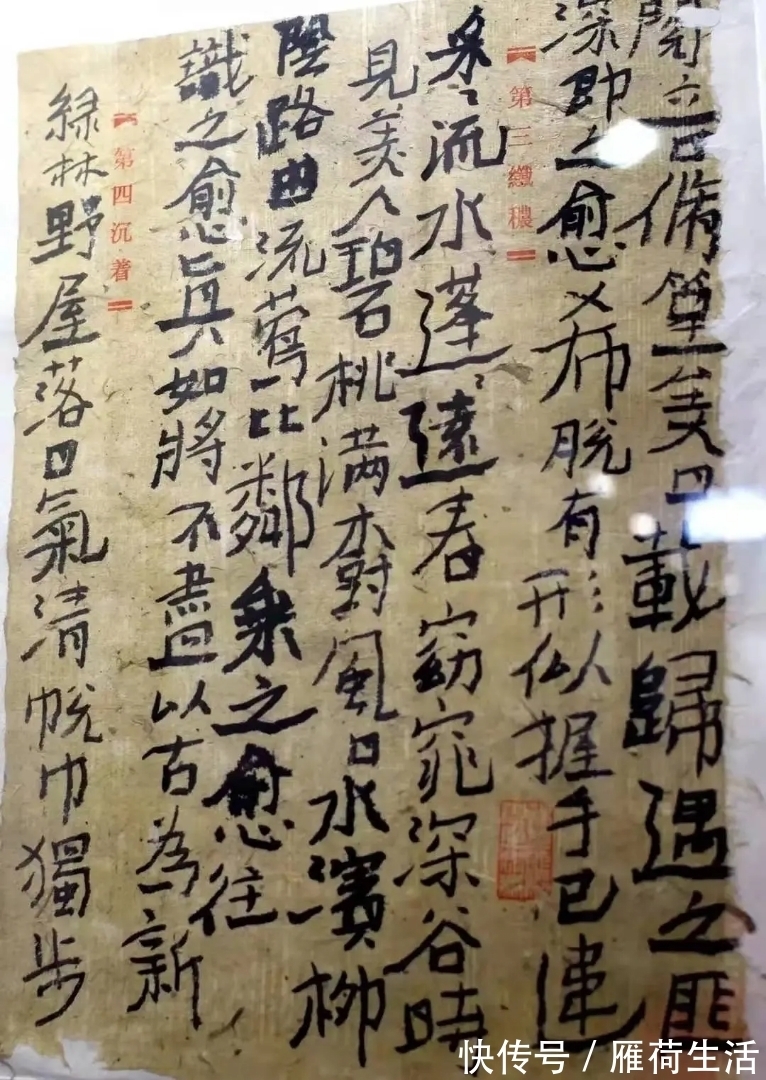 閱音脩篁美曰載歸遇之匪
深即之愈希脫有形似握手已違
第三纖穠
采〻流水蓬〻遠春窈窕深谷時
見美人碧桃满樹風日水濱柳
陰路曲流鶯比鄰乘之愈往
識之愈真如將不盡以古為新
第四沉着
綠林野屋落日氣清帨巾獨步
快传号 / 雁荷生活